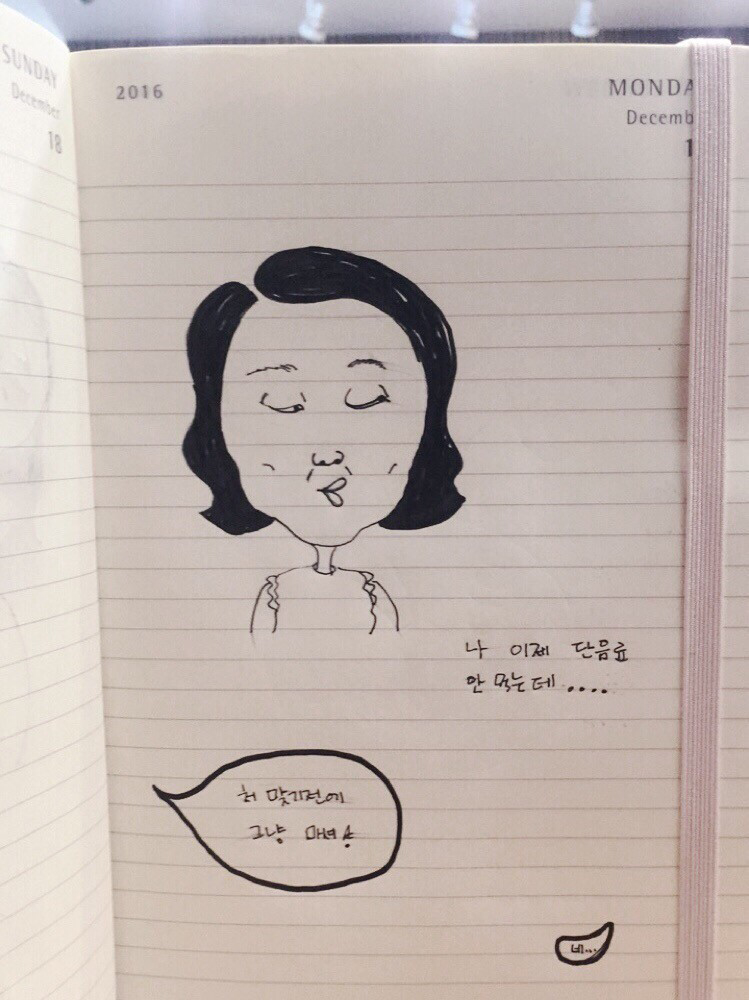 SUNDAY
December
18
2016
MONDA
Decemb
1
나 이제 단음료
안 먹는데....
처 맞기전에
그냥
네...